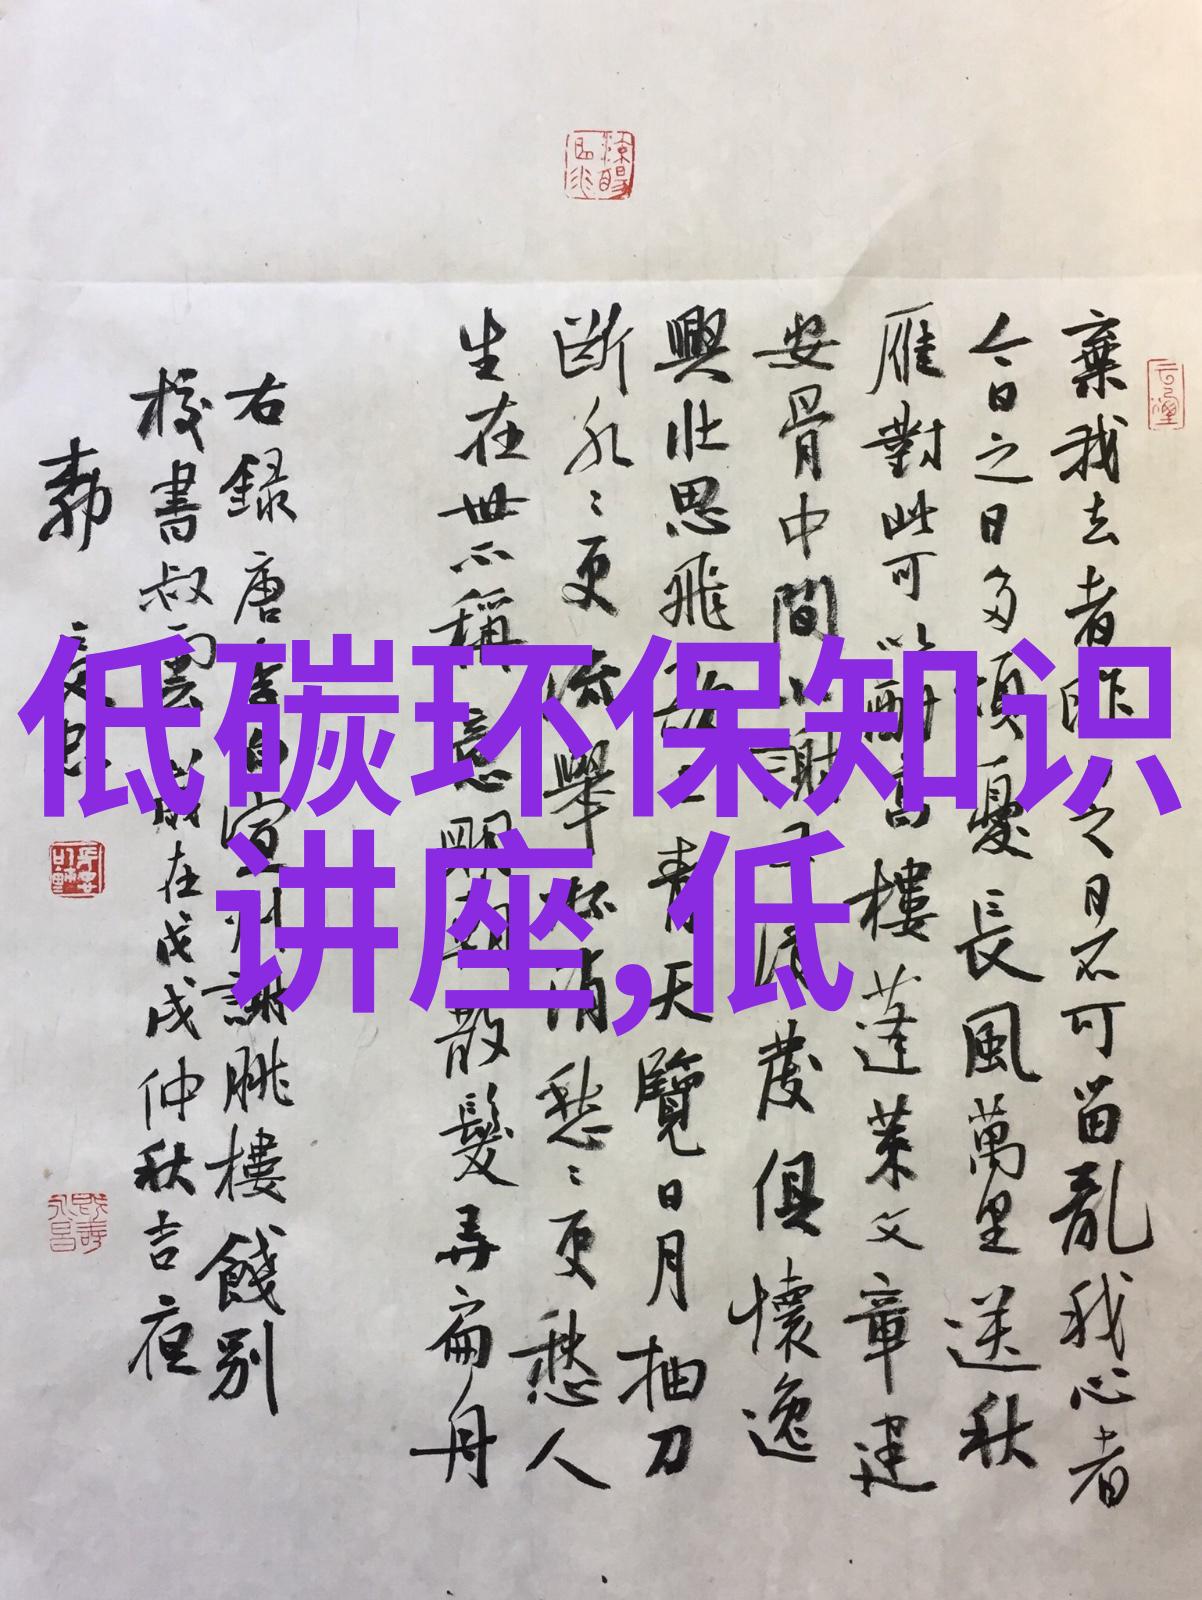 棄我去者昨日之日不可留亂我心者
今日之日多煩憂長風萬里送秋
雁對此可以酣高樓蓬萊文章建
安骨中間小謝又清發俱懷逸
興壯思飛欲上青天覽日月抽刀
斷水〻更流舉杯消愁〻更愁人
生在世不稱意明朝散髮弄扁舟
右録唐李白宣州謝朓樓餞別
校書叔雲歲在戊戌仲秋吉夜
低碳环保知识
讲座,低